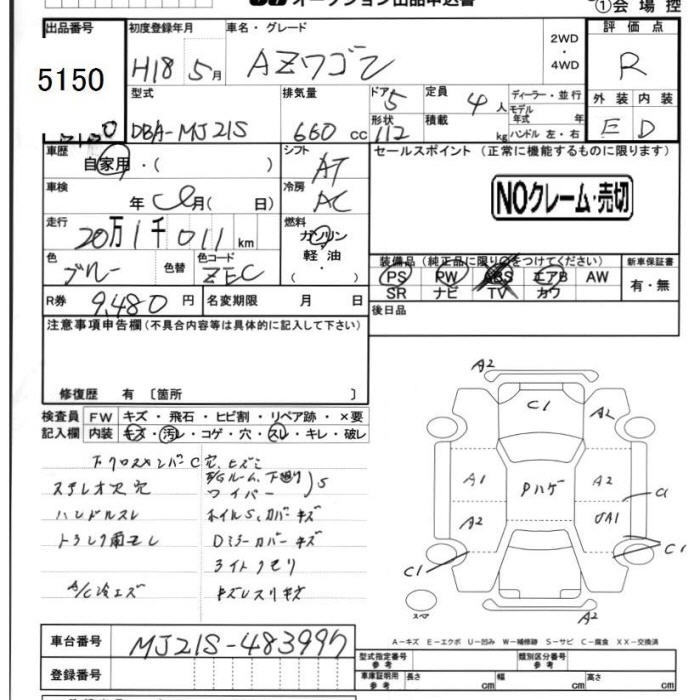 オークション出品申込書
①会場控
出品番号
5150
初度登録年月
H18 5月
車名・グレード
AZワゴン
2WD
・
4WD
評価点
R
型式
DBA-MJ21S
排気量
660 cc
ドア 5
形状 112
定員 4人
積載 kg
ディーラー・並行
モデル年式 年
ハンドル 左・右
外装 内装
E D
車歴
自家用・( )
シフト
AT
セールスポイント (正常に機能するものに限ります)
車検
年 月( 日)
冷房
AC
NOクレーム・売切
走行
20万1千011km
燃料
ガソリン
・
軽油
( )
色
ブルー
色替
色コード
ZEC
装備品 (純正品に限り○をつけてください)
新車保証書
PS PW ABS エアB AW
有・無
SR ナビ TV カワ
R券 9,480円
名変期限 月 日
後日品
注意事項申告欄(不具合内容等は具体的に記入して下さい)
修復歴 有 〔箇所 〕
検査員
記入欄
FW キズ・飛石・ヒビ割・リペア跡・×要
内装 キズ・汚レ・コゲ・穴・スレ・キレ・破レ
下クロスメンバーC穴、ヒズミ
ステレオ穴穴
E/Gルーム、下廻り
ワイパー
S
ハンドルスレ
ホイルS、カバーキズ
トランク雨モレ
Dミラーカバーキズ
ライトクモリ
A/C冷エズ
ガラスキズ
A2
C1
A2
A1
PハゲA2
A2
UA1
C1
C1
C1
スペア
A2
A-キズ E-エクボ U-凹み W-補修跡 S-サビ C-腐食 XX-交換済
車台番号
MJ21S-483997
登録番号
型式指定番号
参考
類別区分番号
参考
車庫証明用
参考
長さ cm
幅 cm
高さ cm